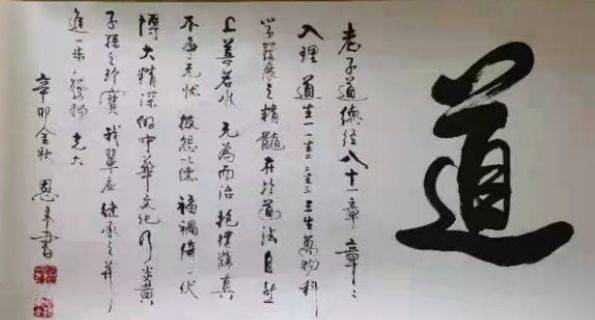 道
老子道德经八十一章章〻
入理道生一一生二二生三三生萬物科
学發展之精髓在於道法自然
上善若水无為而治抱樸归真
不争无忧报怨以德福祸倚〻伏
博大精深的中華文化乃炎黄
子孫之瑰寶我輩应继承之并
進一步發揚光大
辛卯金秋 恩来書